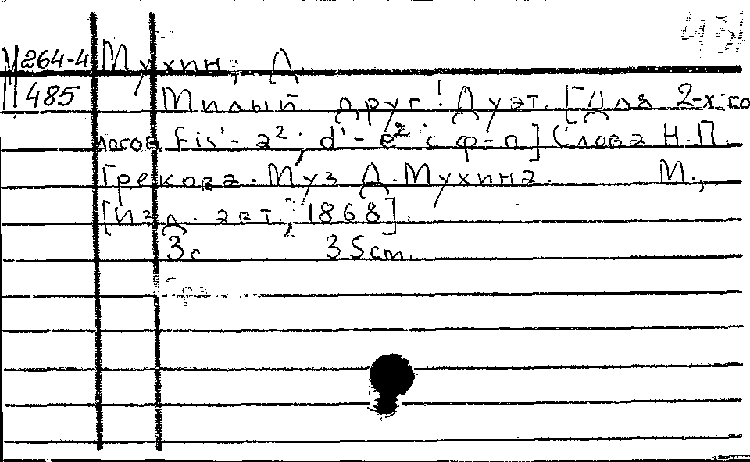 М 264-4
М 485
Мухин, Д.
Милый друг! Дуэт. [Для 2-х го
лосов fis'- a²; d'- e² с ф-п] Слова Н.П.
Грекова. Муз Д. Мухина. М.,
[изд. авт., 1868]
3с 35cm.